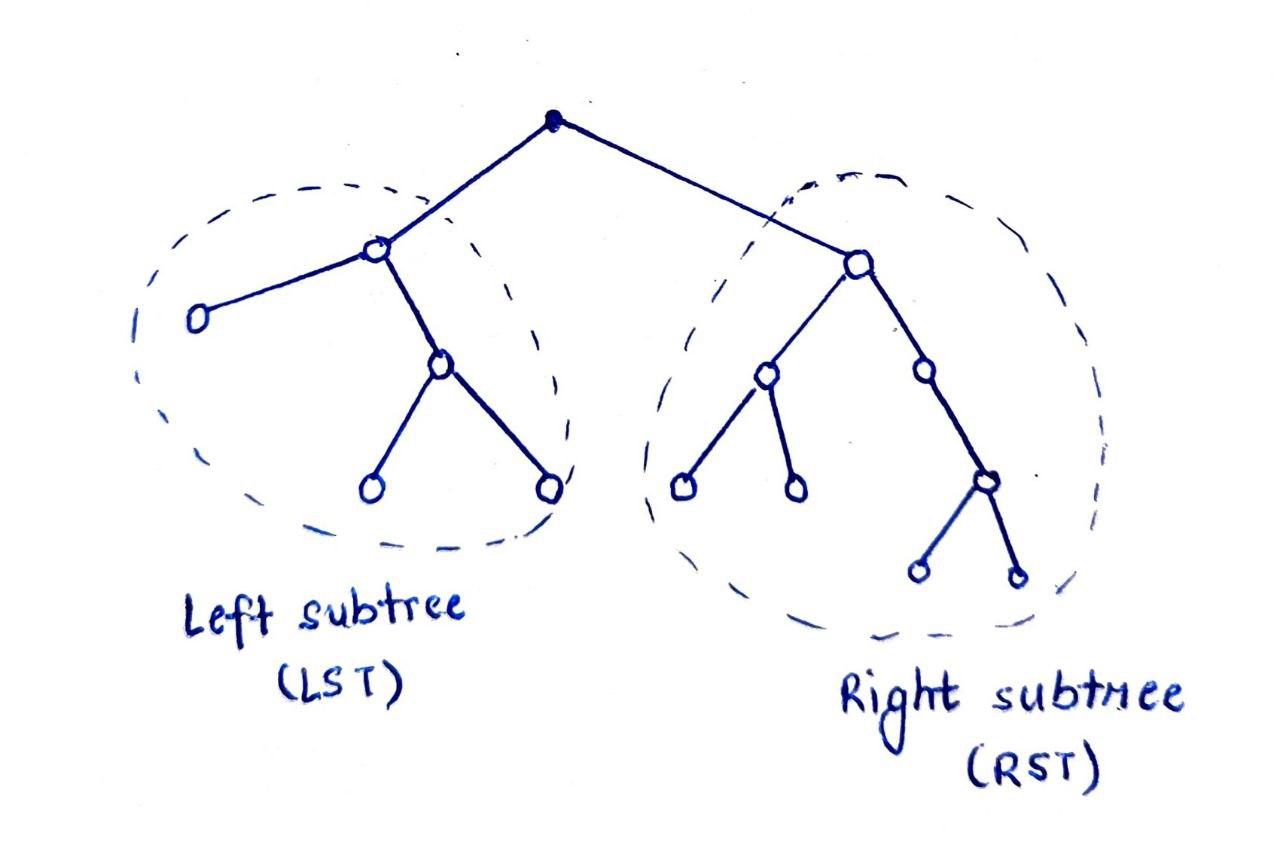 Left subtree
(LST)
Right subtree
(RST)